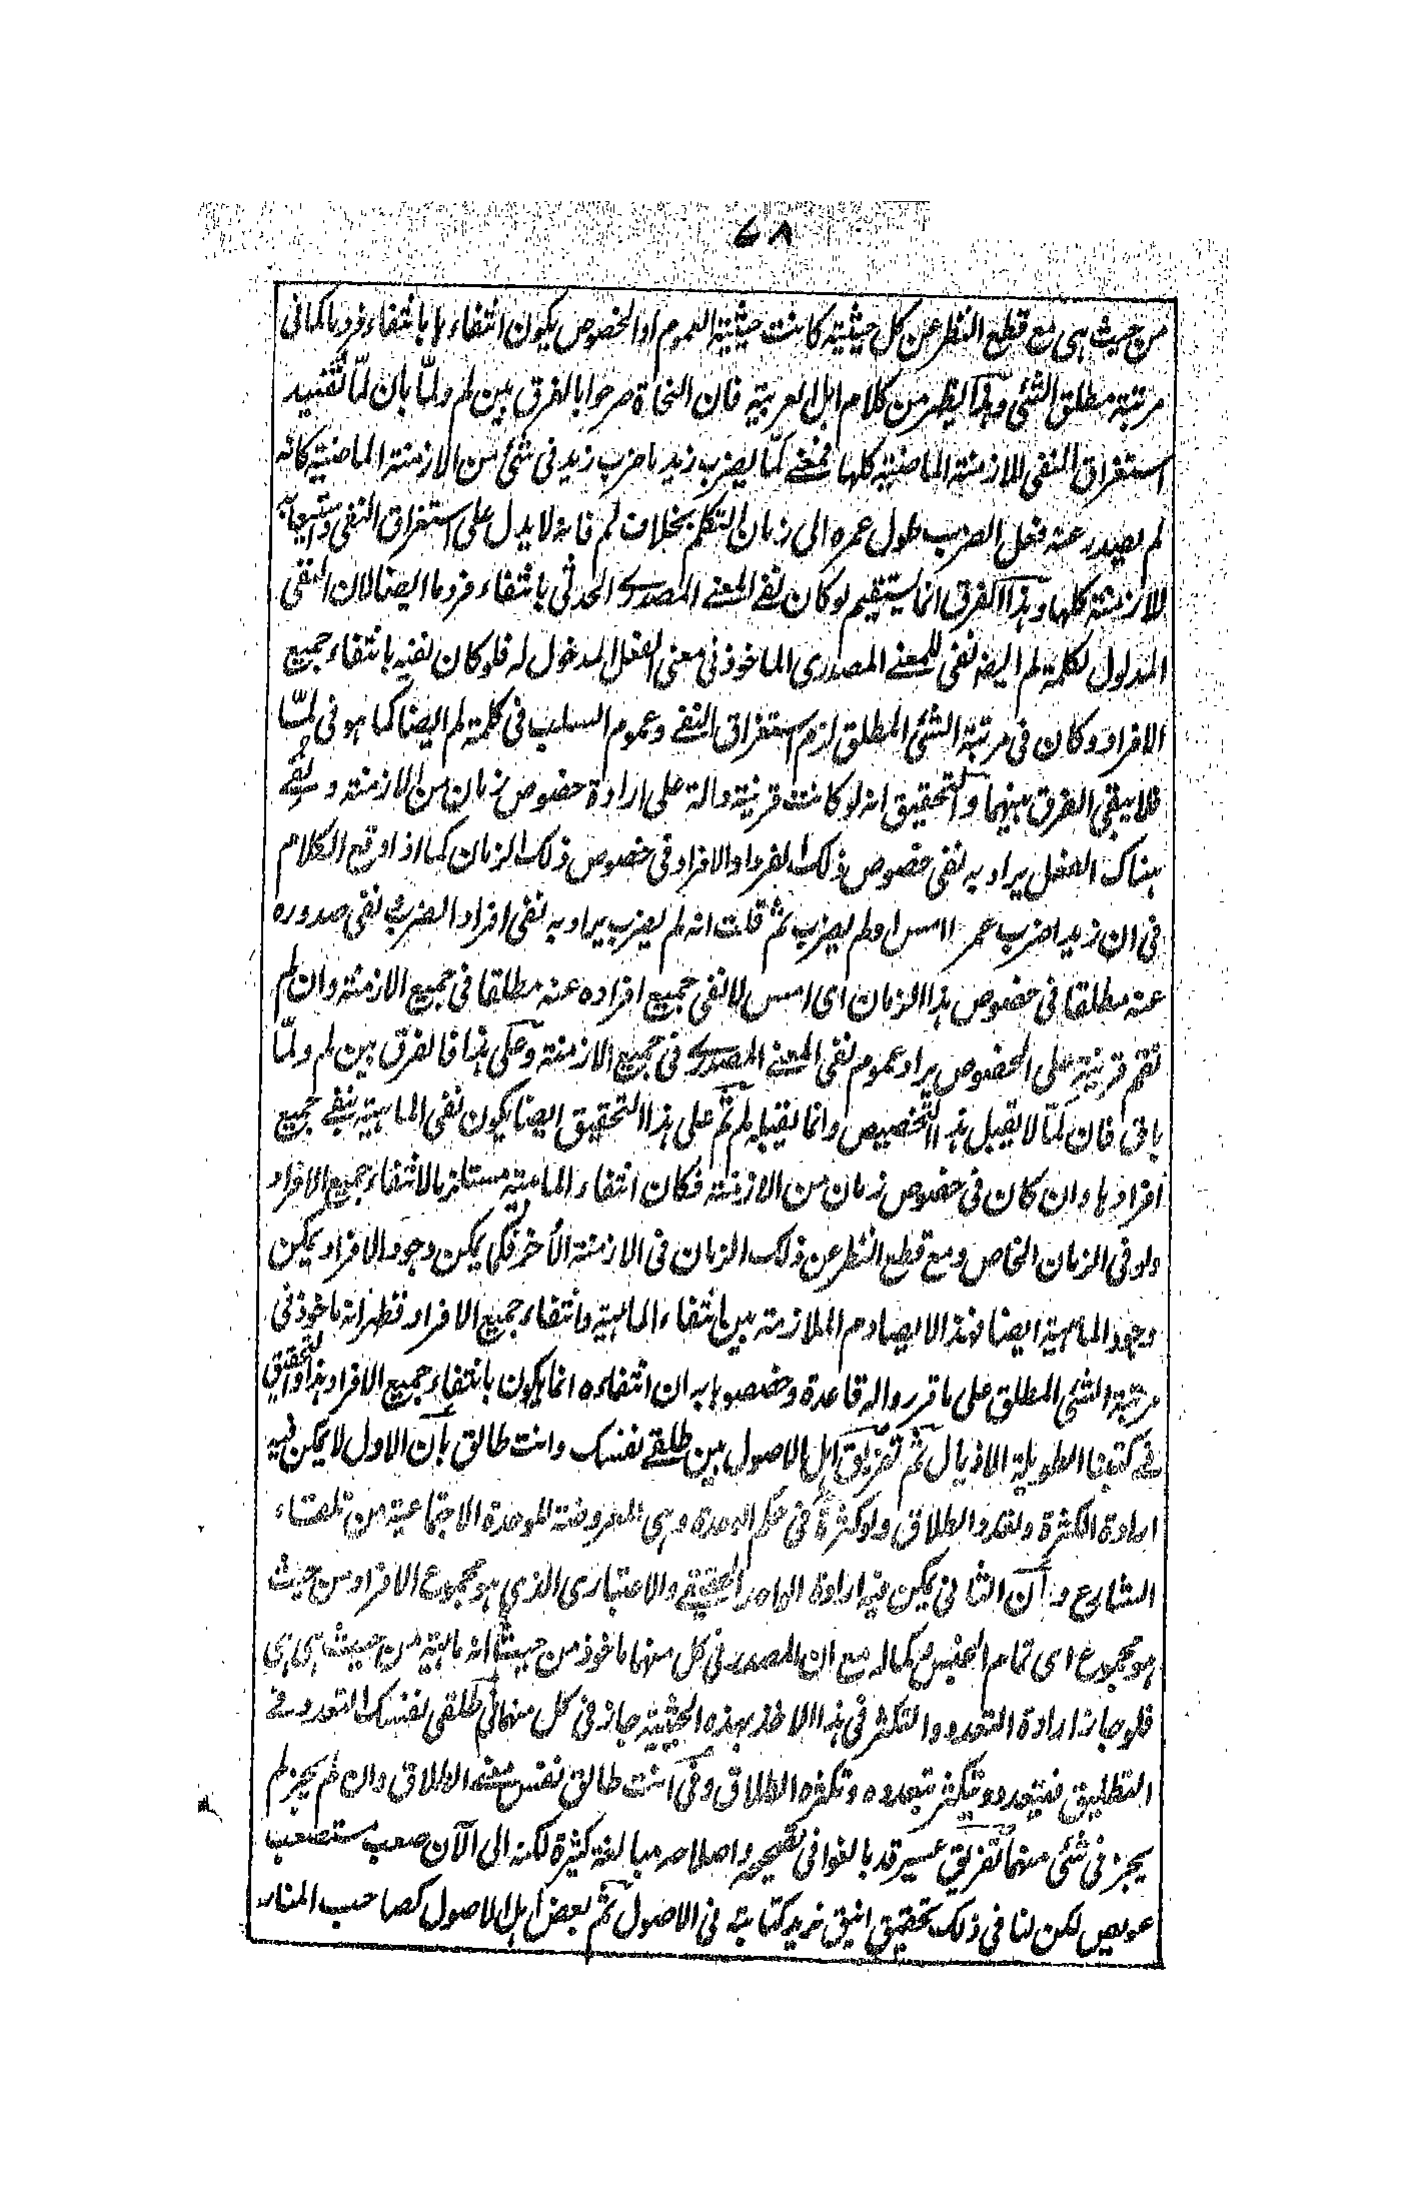 ٧٨
من حيث هى مع قطع النظر عن كل حيثية كانت حيثية العموم او الخصوص يكون انتفاءها بانتفاء فرد ما كما فى
مرتبة مطلق الشئ وهذا يظهر من كلام اهل العربية فان النحاة صرحوا بالفرق بين لم ولمّا بان لمّا تفيد
استغراق النفى للازمنة الماضية كلها فمعنے لمّا يضرب زيد ما ضرب زيد فى شئ من الازمنة الماضية كانه
لم يصدر عنه فعل الضرب طول عمره الى زمان التكلم بخلاف لم فانه لا يدل على استغراق النفى واستيعابه
للازمنة كلها وهذا الفرق انما يستقيم لو كان نفے المعنے المصدرے الحدثى بانتفاء فرد ما ايضا لان النفى
المدلول لكلمة لم ايضه نفى للمعنے المصدرى الماخوذ فى معنى الفعل المدخول له فلو كان نفيه بانتفاء جميع
الافراد وكان فى مرتبة الشئ المطلق لزم استغراق النفے وعموم السلب فى كلمة لم ايضا كما هو فى لمّا
فلا يبقى الفرق بينهما والتحقيق انه لو كانت قرينة دالة على ارادة خصوص زمان من الازمنة و نفے
هناك الفعل يراد به نفى خصوص ذلك الفرد او الافراد فى خصوص ذلك الزمان كما اذا وقع الكلام
فى ان زيدا ضرب عمرا امس او لم يضرب ثم قلت انه لم يضرب يراد به نفى افراد الضرب و نفى صدوره
عنه مطلقا فى خصوص هذا الزمان اى امس لا نفى جميع افراده عنه مطلقا فى جميع الازمنة وان لم
تقم قرينة على الخصوص يراد عموم نفى المعنے المصدرے فى جميع الازمنة وعلى هذا فالفرق بين لم ولمّا
باق فان لمّا لا يقبل هذا التخصيص وانما يقبله لم ثم على هذا التحقيق ايضا يكون نفى الماهية بنفے جميع
افرادها وان كان فى خصوص زمان من الازمنة فكان انتفاء الماهية مستلزما لانتفاء جميع الافراد
ولو فى الزمان الخاص ومع قطع النظر عن ذلك الزمان فى الازمنة الأخر فكما يمكن وجود الافراد يمكن
وجود الماهية ايضا فهذا لا يصادم الملازمة بين انتفاء الماهية وانتفاء جميع الافراد فظهر انه ماخوذ فى
مرتبة الشئ المطلق على ما قرروا له قاعدة وخصصوها به ان انتفاءه انما يكون بانتفاء جميع الافراد هذا والتحقيق
فے كتبنا الطويلة الاذيال ثم تفريق اهل الاصول بين طلقے نفسك وانت طالق بأن الاول لا يمكن فيه
ارادة الكثرة وتعدد الطلاق ولو كثرة فى حكم الوحدة وهى المعروضة للوحدة الاجتماعية من تلقاء
الشارع وأن الثانى يمكن فيه ارادة الواحد الحقيقے والاعتبارى الذى هو مجموع الافراد من حيث
هو مجموع اى تمام الجنس بكماله مع ان المصدر فى كل منهما ماخوذ من حيث انه ماهية من حيث هى هى
فلو جاز ارادة التعدد والتكثر فى هذا الاخذ بهذه الحيثية جاز فى كل منهما فى طلقى نفسك التعدد فے
التطليق فيتعدد ويتكثر بتعدده وتكثره الطلاق وفى انت طالق نفس معنے الطلاق وان لم يجز لم
يجز فى شئ منهما تفريق عسير قد بالغوا فى تصحيحه واصلاحه مبالغة كثيرة لكنه الى الآن صعب مستصعب
عويص لكن لنا فى ذلك تحقيق انيق نريد كتابته فى الاصول ثم بعض اهل الاصول كصاحب المنار